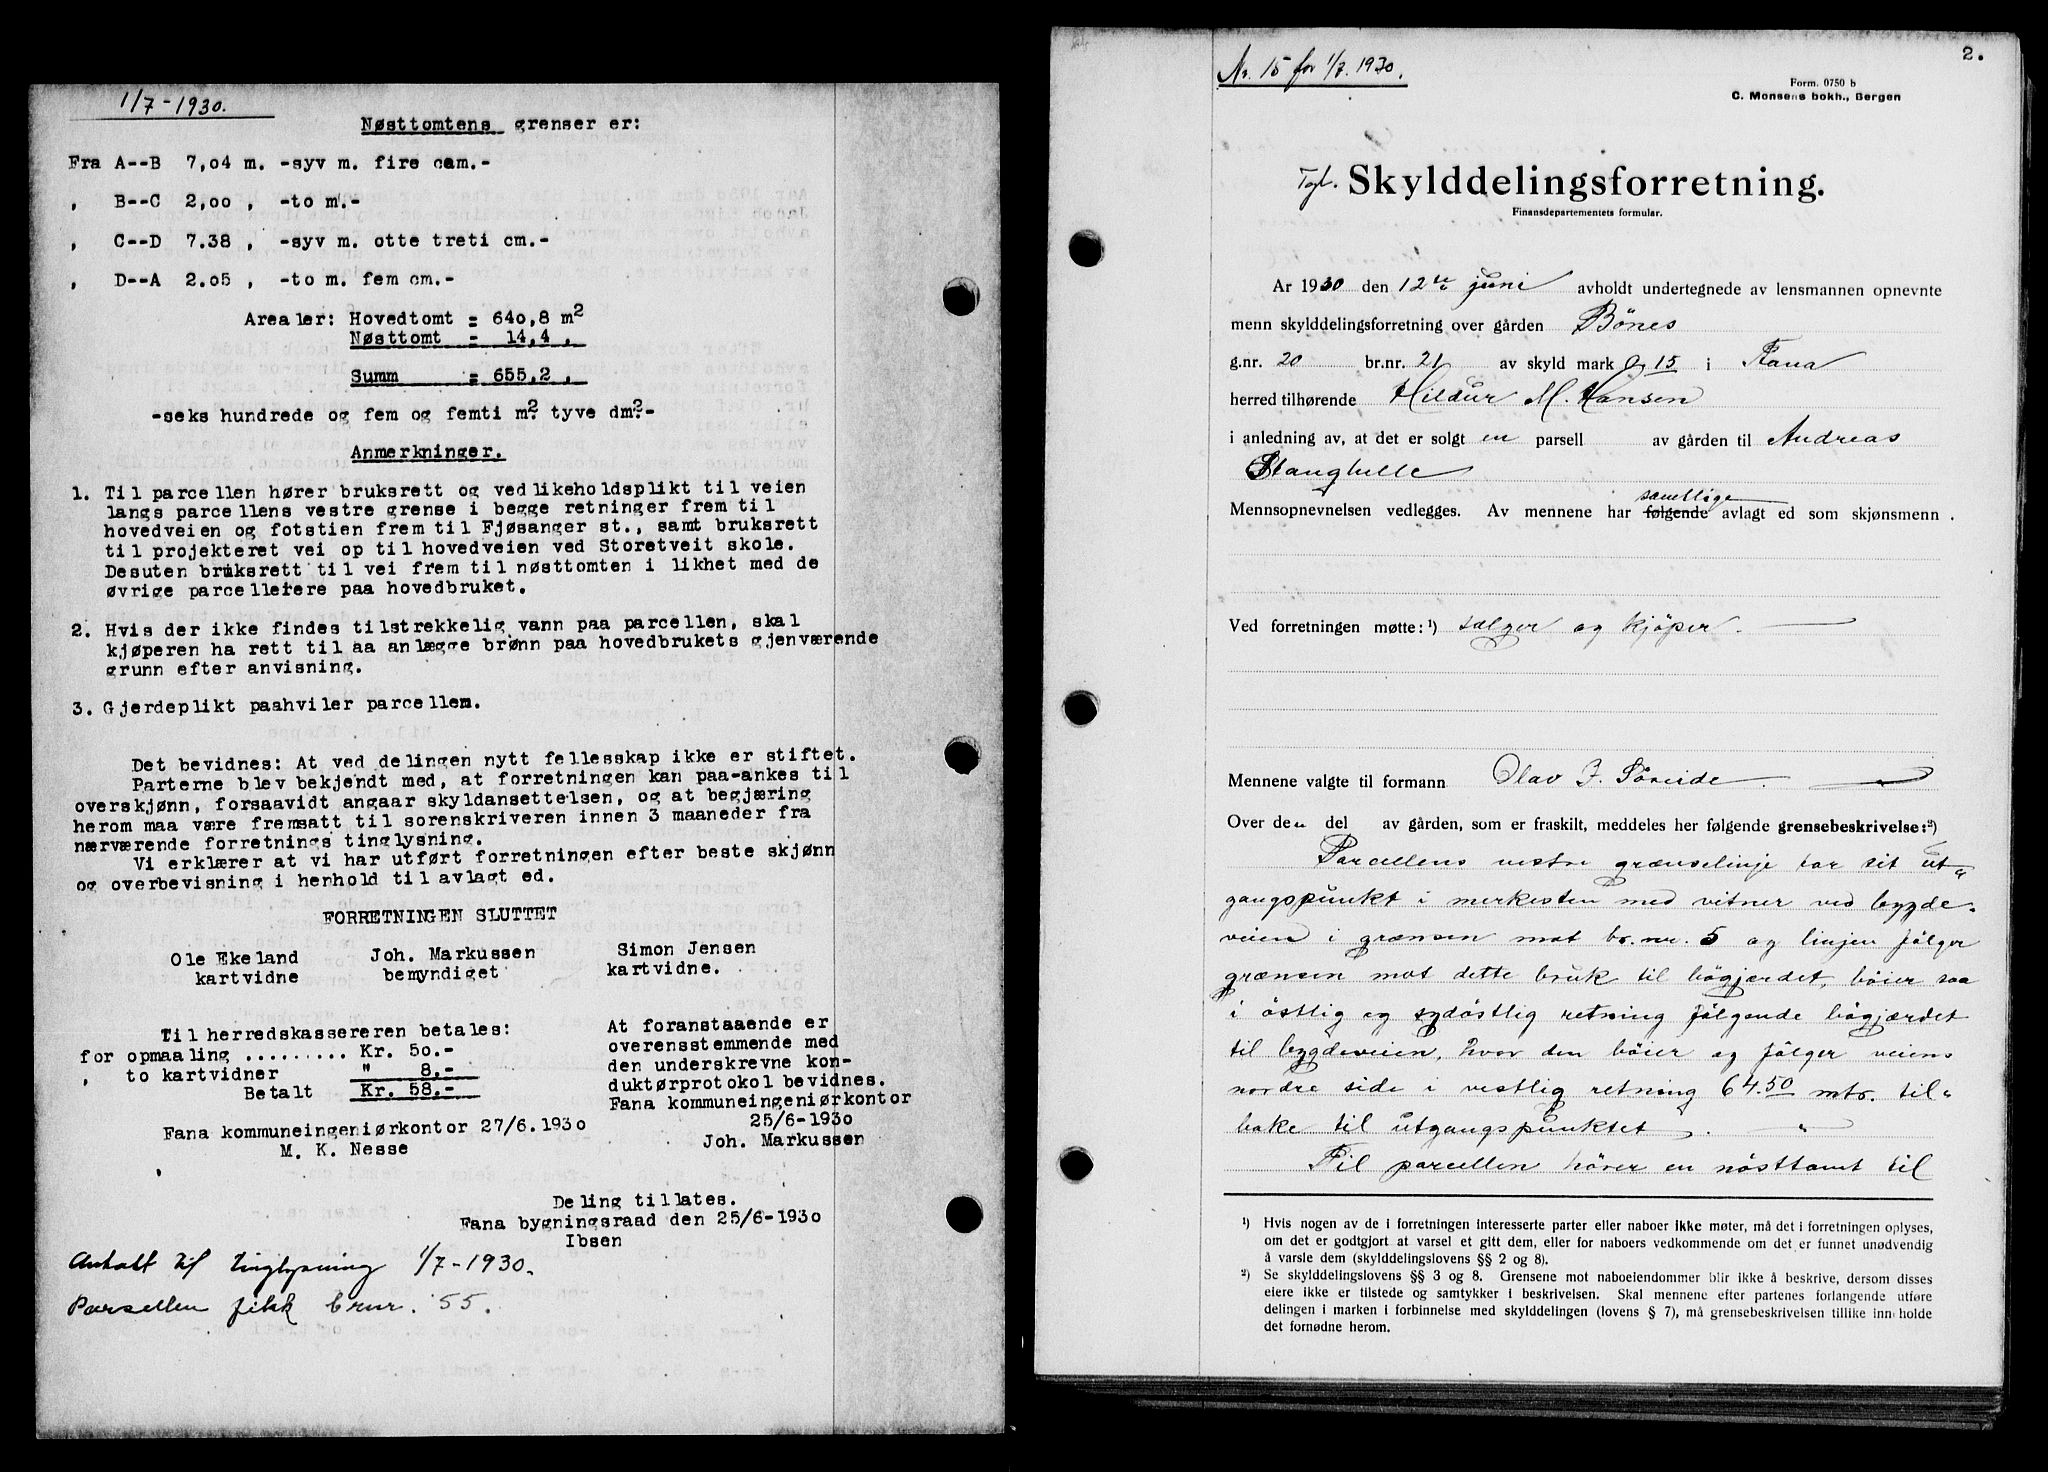 1/7-1930.
Nøsttomtens grenser er:
Fra A--B 7,04 m. -syv m. fire cam.-
, B--C 2,00 , -to m.-
, C--D 7.38 , -syv m. otte treti cm.-
, D--A 2.05 , -to m. fem cm.-
Arealer: Hovedtomt = 640,8 m2
Nøsttomt = 14,4 ,
Summ = 655,2 ,
-seks hundrede og fem og femti m2. tyve dm2.-
Anmerkninger.
1. Til parcellen hører bruksrett og vedlikeholdsplikt til veien
langs parcellens vestre grense i begge retninger frem til
hovedveien og fotstien frem til Fjøsanger st., samt bruksrett
til projekteret vei op til hovedveien ved Storetveit skole.
Desuten bruksrett til vei frem til nøsttomten i likhet med de
øvrige parcelleiere paa hovedbruket.
2. Hvis der ikke findes tilstrekkelig vann paa parcellen, skal
kjøperen ha rett til aa anlægge brønn paa hovedbrukets gjenværende
grunn efter anvisning.
3. Gjerdeplikt paahviler parcellen.
Det bevidnes: At ved delingen nytt fellesskap ikke er stiftet.
Parterne blev bekjendt med, at forretningen kan paa-ankes til
overskjønn, forsaavidt angaar skyldansettelsen, og at begjæring
herom maa være fremsatt til sorenskriveren innen 3 maaneder fra
nærværende forretnings tinglysning.
Vi erklærer at vi har utført forretningen efter beste skjønn
og overbevisning i henhold til avlagt ed.
FORRETNINGEN SLUTTET
Ole Ekeland Joh. Markussen Simon Jensen
kartvidne bemyndiget kartvidne.
Til herredskassereren betales:
for opmaaling ......... Kr. 50.-
, to kartvidner " 8.-
Betalt Kr. 58.-
Fana kommuneingeniørkontor 27/6.1930
M. K. Nesse
At foranstaaende er
overensstemmende med
den underskrevne kon-
duktørprotokol bevidnes.
Fana kommuneingeniørkontor
25/6-1930
Joh. Markussen
Deling tillates.
Fana bygningsraad den 25/6-1930
Ibsen
Anholt til tinglysning 1/7-1930.
Parsellen fikk brnr. 55.
Nr. 15 for 1/7. 1930.
2.
Form. 0750 b
C. Monsens bokh., Bergen
Tgl. Skylddelingsforretning.
Finansdepartementets formular.
Ar 1930 den 12te juni avholdt undertegnede av lensmannen opnevnte
menn skylddelingsforretning over gården Bönes
g.nr. 20 br.nr. 21 av skyld mark 0,15 i Fana
herred tilhørende Hildur M. Hansen
i anledning av, at det er solgt en parsell av gården til Andreas
Stanghelle
samtlige
Mennsopnevnelsen vedlegges. Av mennene har følgende avlagt ed som skjønsmenn.
Ved forretningen møtte:¹) sælger og kjöper.
Mennene valgte til formann Olav J. Söreide.
Over den del av gården, som er fraskilt, meddeles her følgende grensebeskrivelse:²)
Parcellens vestre grænselinje tar sit ut„
gangspunkt i merkesten med vitner ved bygde„
veien i grænsen mot br.nr. 5 og linjen fölger
grænsen mot dette bruk til bögjærdet, böier saa
i östlig og sydöstlig retning fölgende bögjærdet
til bygdeveien, hvor den böier og fölger veiens
nordre side i vestlig retning 64.50 mtr. til„
bake til utgangspunktet.
Til parcellen hörer en nösttomt til
¹) Hvis nogen av de i forretningen interesserte parter eller naboer ikke møter, må det i forretningen oplyses,
om det er godtgjort at varsel et gitt dem, eller for naboers vedkommende om det er funnet unødvendig
å varsle dem (skylddelingslovens §§ 2 og 8).
²) Se skylddelingslovens §§ 3 og 8. Grensene mot naboeiendommer blir ikke å beskrive, dersom disses
eiere ikke er tilstede og samtykker i beskrivelsen. Skal mennene efter partenes forlangende utføre
delingen i marken i forbinnelse med skylddelingen (lovens § 7), må grensebeskrivelsen tillike inneholde
det fornødne herom.